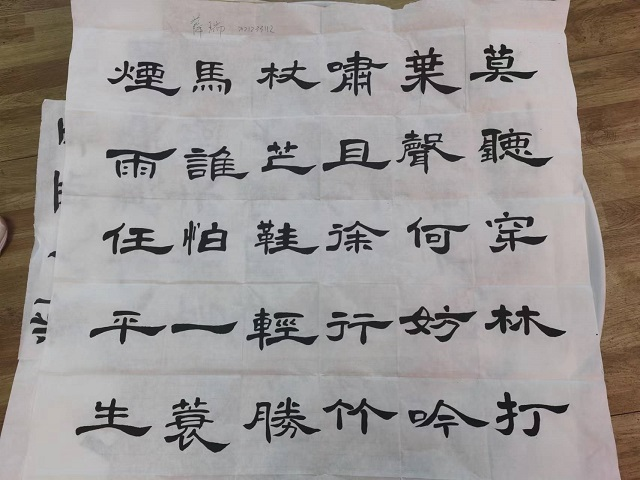 莫聽穿林打
葉聲何妨吟
嘯且徐行竹
杖芒鞋輕勝
馬誰怕一蓑
煙雨任平生